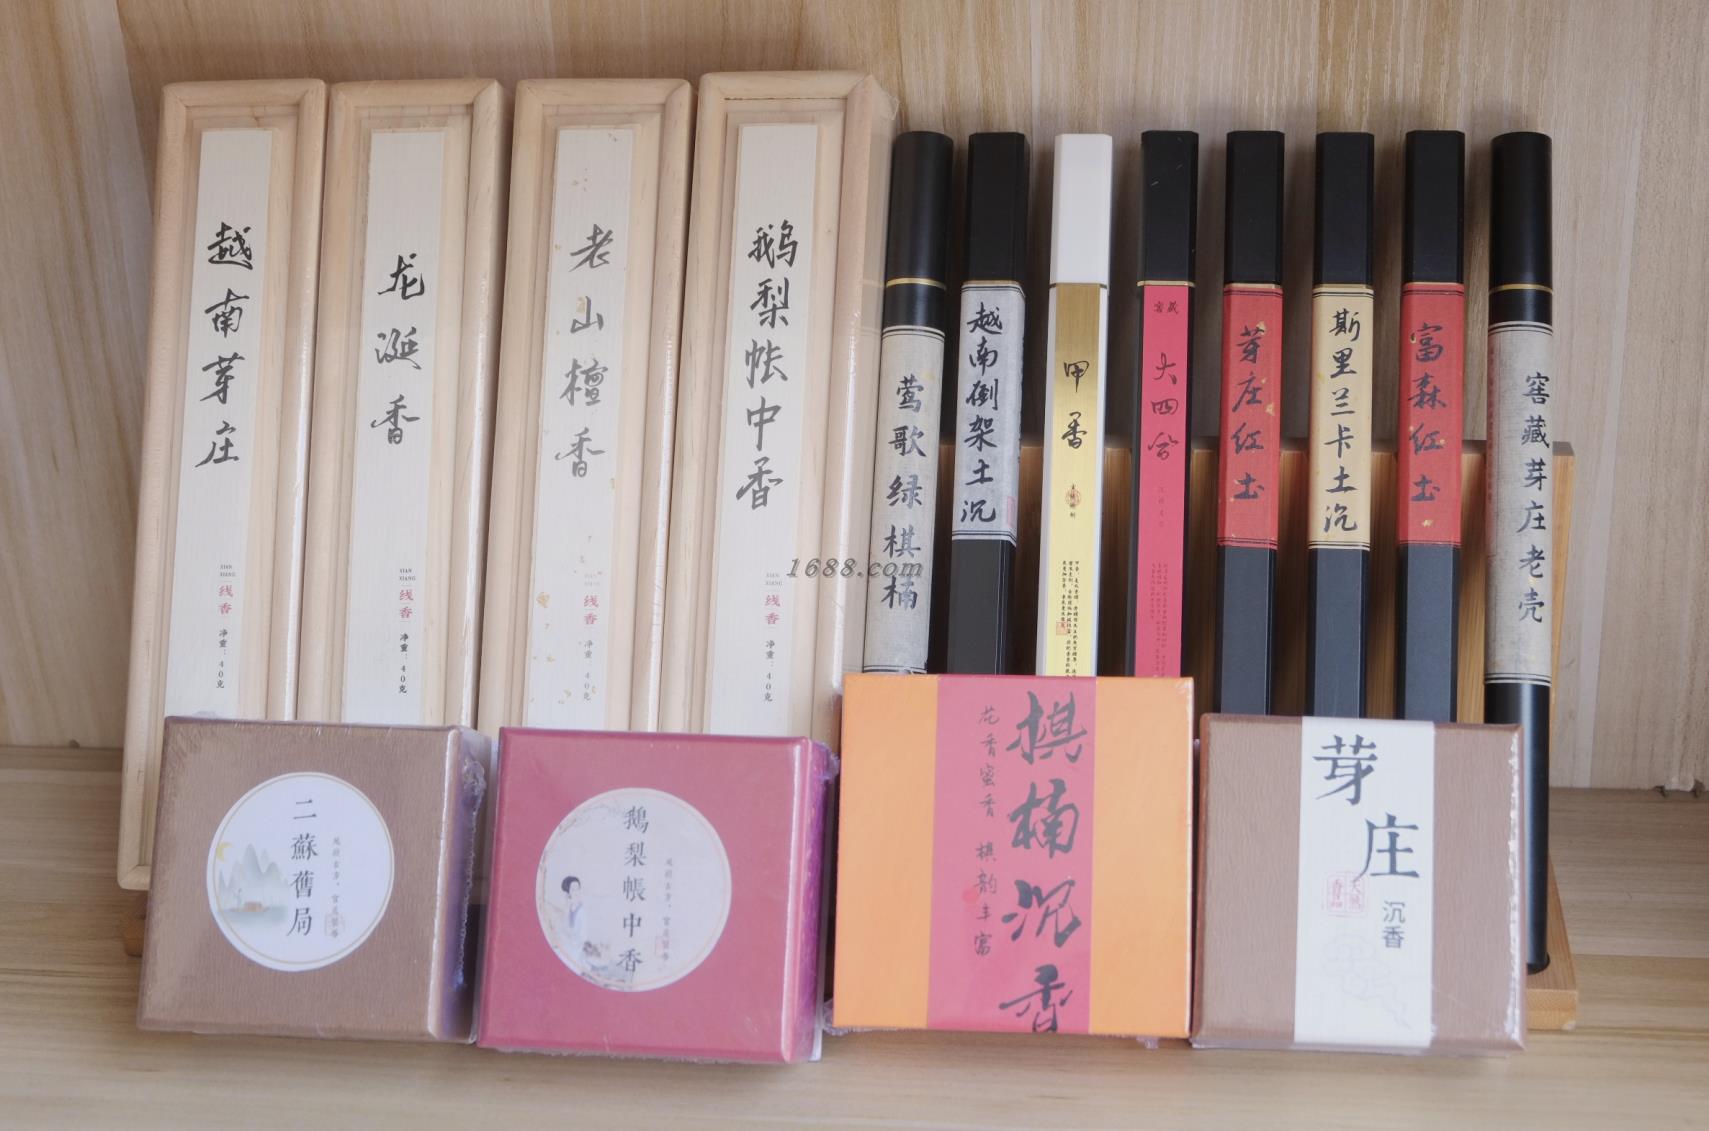 越南芽庄
XIAN
XIANG
线香
净重：40克
龙涎香
XIAN
XIANG
线香
净重：40克
老山檀香
XIAN
XIANG
线香
净重：40克
鹅梨帐中香
XIAN
XIANG
线香
净重：40克
莺歌绿棋楠
越南倒架土沉
甲香
窖藏
大四合
芽庄红土
斯里兰卡土沉
富森红土
窖藏芽庄老壳
1688.com
二蘇舊局
鵝梨帳中香
棋楠沉香
花香蜜香 棋韵丰富
芽庄
沉香